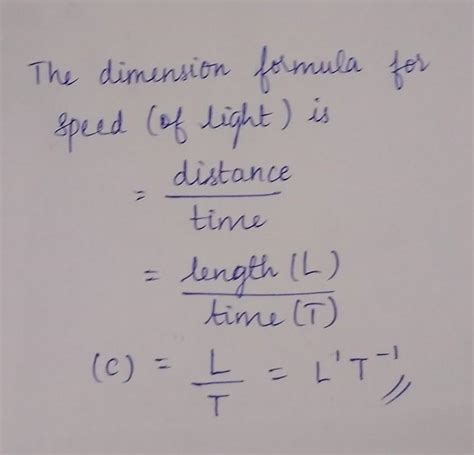 The dimension formula for
speed (of light) is
= distance / time
= length (L) / time (T)
(C) = L / T = L¹T⁻¹